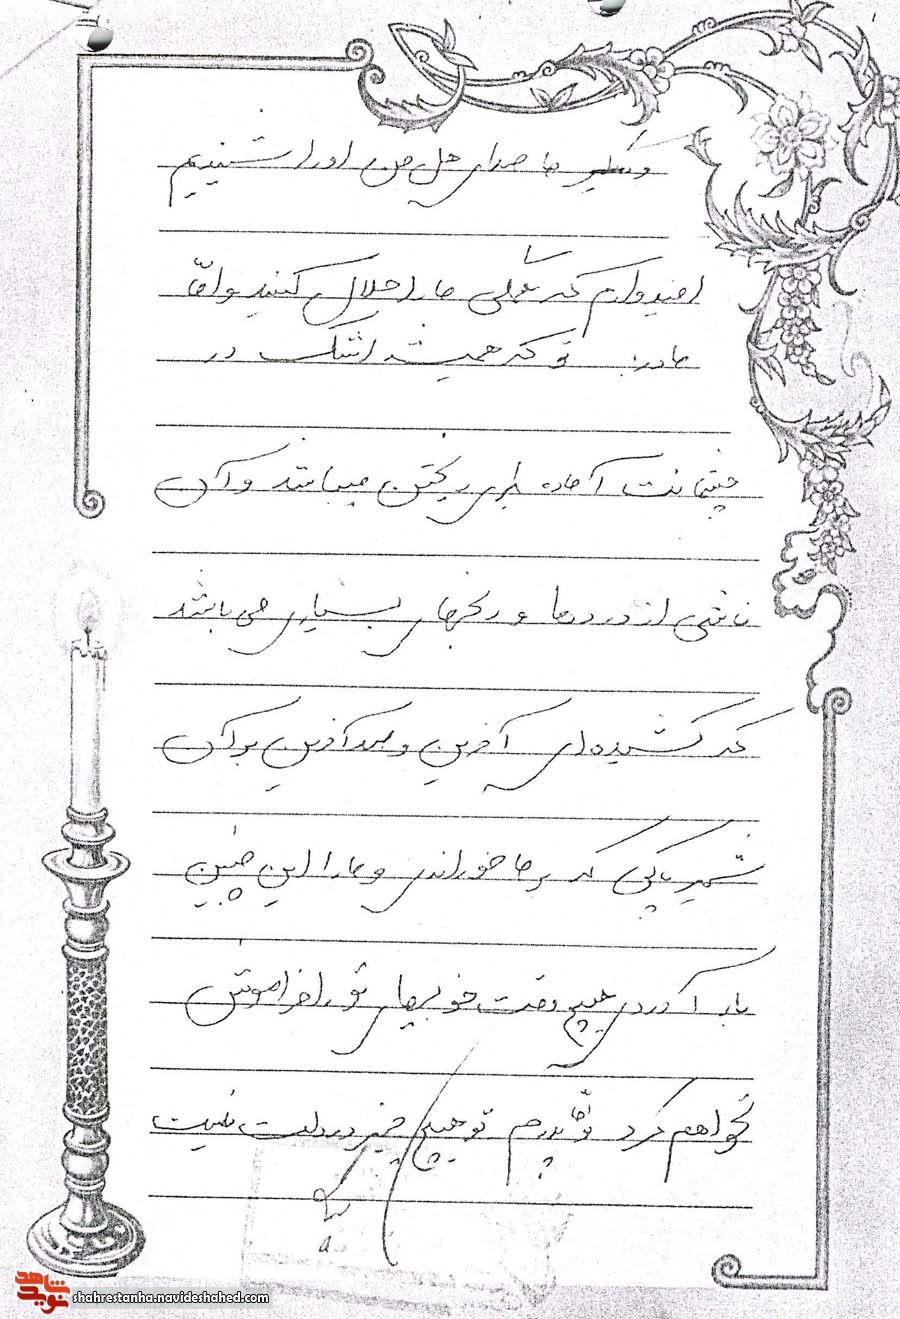 و ما صدای هل من او را شنیدیم
امیدوارم که همگی ما را حلال کنید و امّا
مادر: تو که همیشه اشک در
چشمانت آماده برای ریختن میباشد و آن
ناشی از دردها و رنجهای بسیاری می باشد
که کشیده‌ای آفرین و صد آفرین بر آن
شیر پاکی که بر ما خوراندی و ما را این چنین
بار آوردی هیچ وقت خوبیهای تو را فراموش
نخواهم کرد و امّا پدرم تو هیچ چیز در دلت نیست
شاهد
نوید
shahrestanha.navideshahed.com